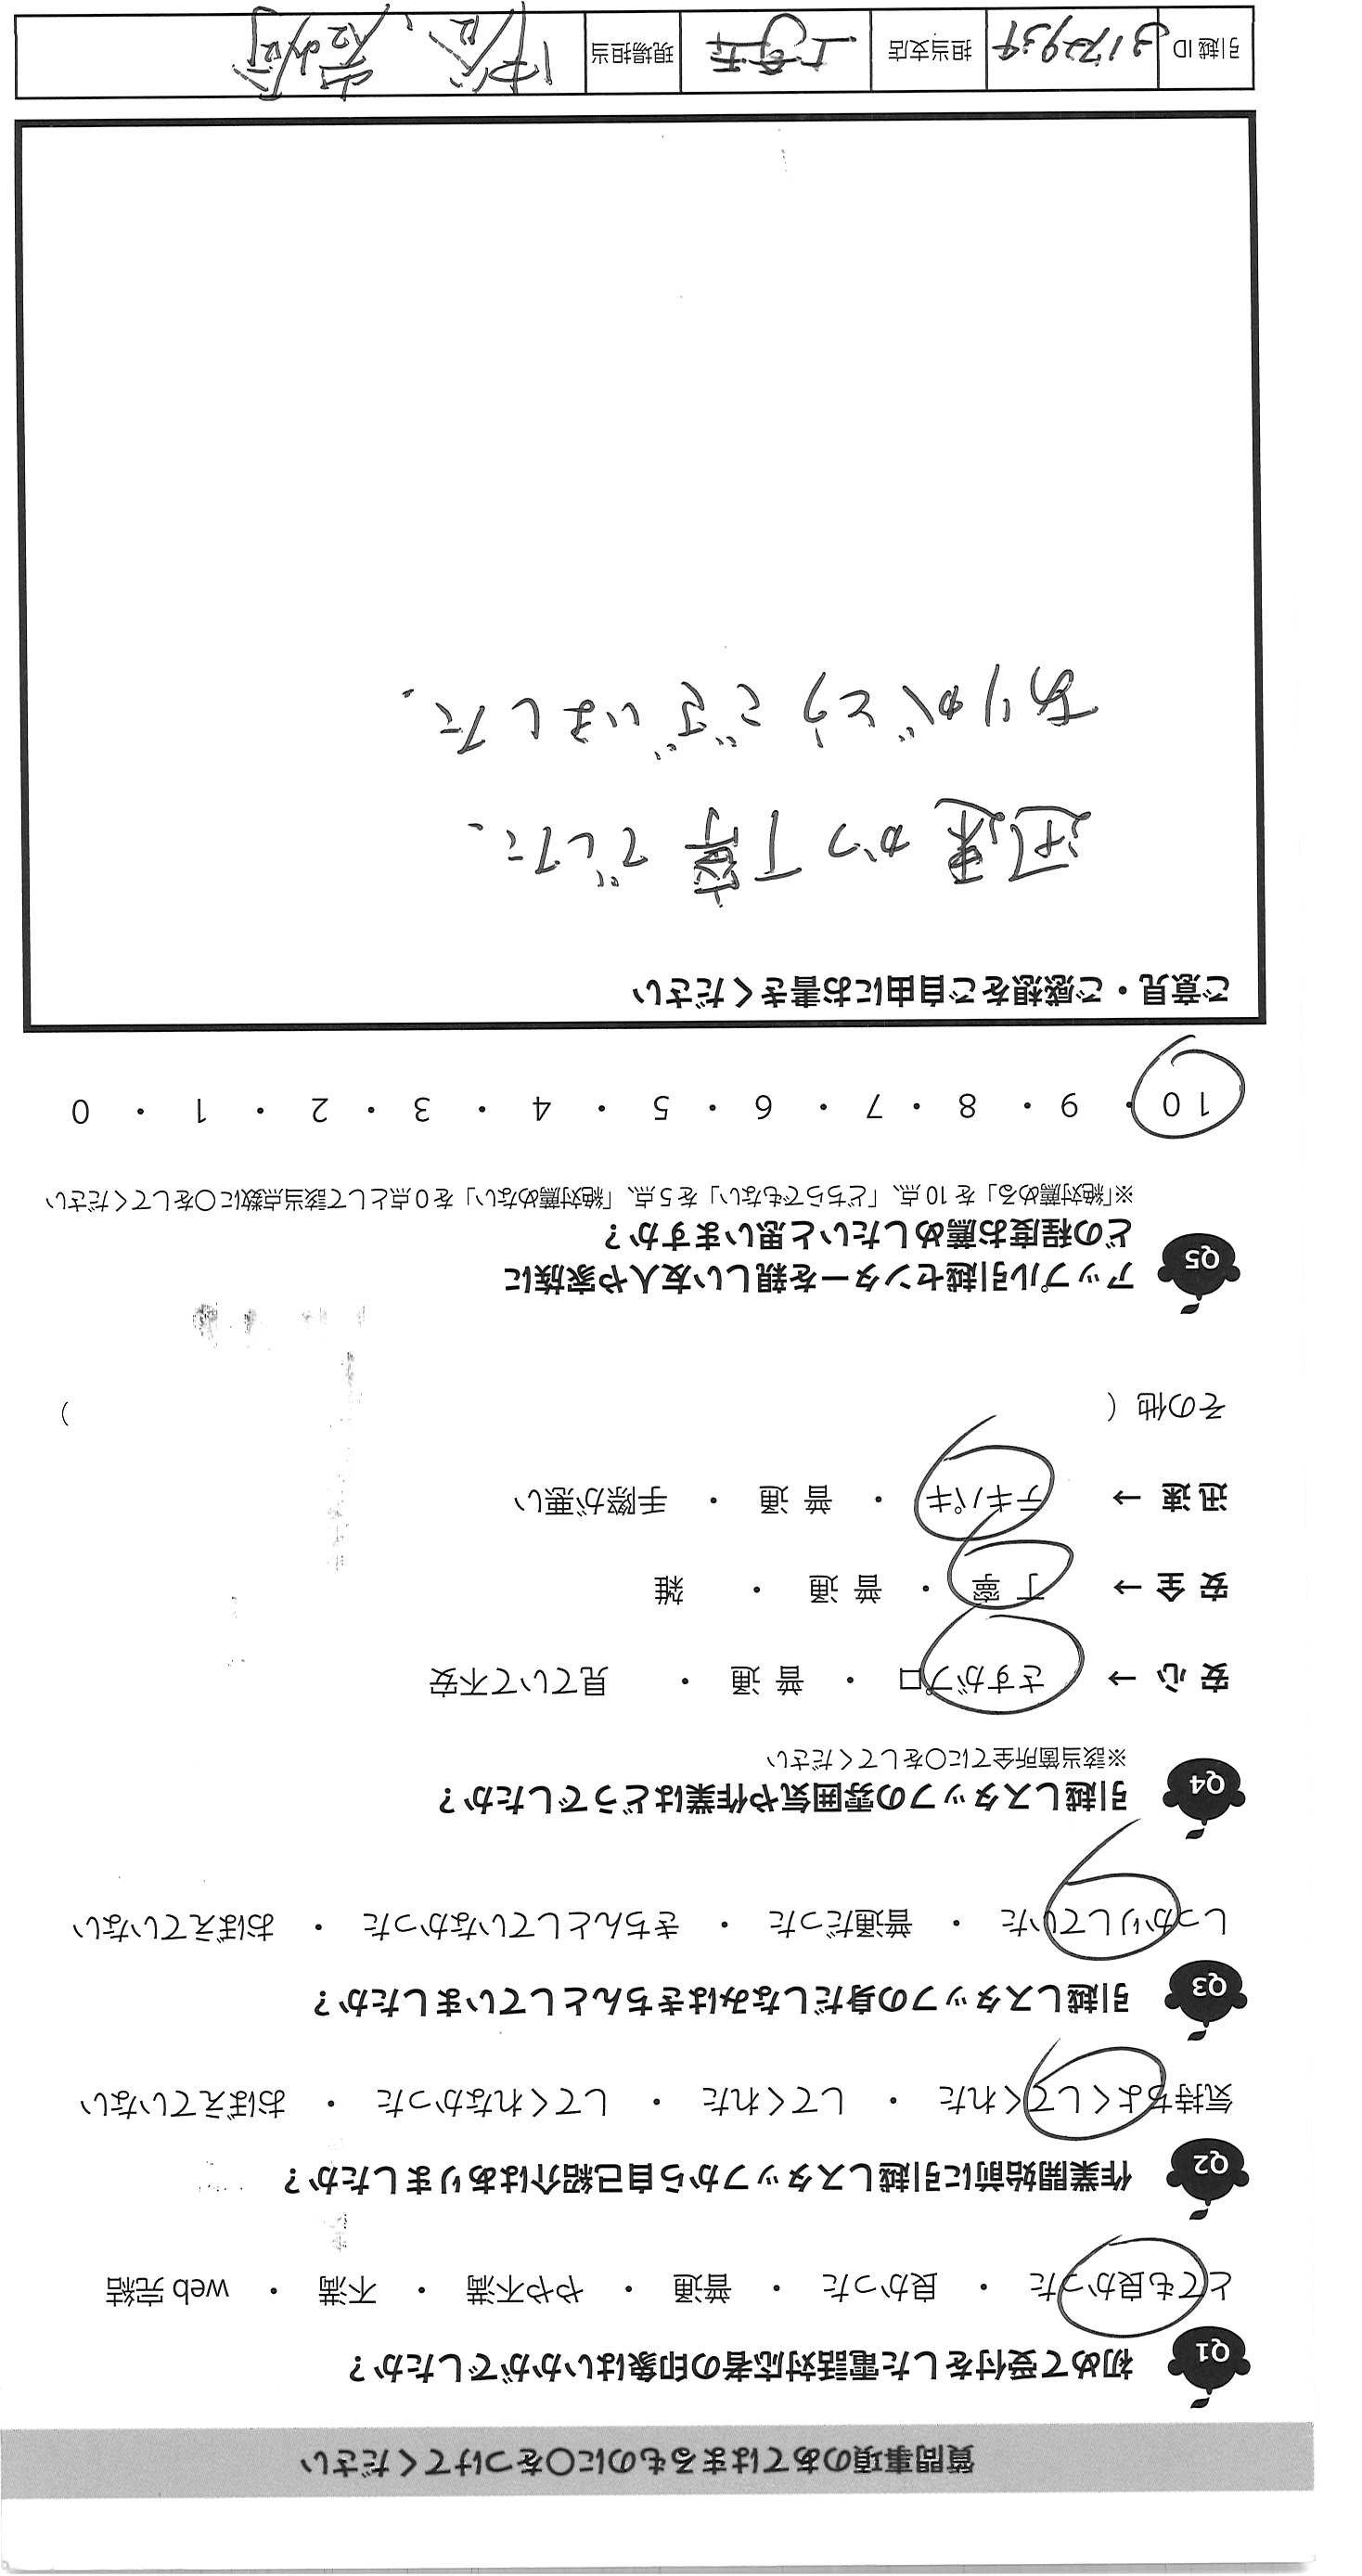 質問事項のあてはまるものに〇をつけてください
Q1 初めて受付をした電話対応者の印象はいかがでしたか？
とても良かった ・ 良かった ・ 普通 ・ やや不満 ・ 不満 ・ web 完結
Q2 作業開始前に引越しスタッフから自己紹介はありましたか？
気持ちよくしてくれた ・ してくれた ・ してくれなかった ・ おぼえていない
Q3 引越しスタッフの身だしなみはきちんとしていましたか？
しっかりしていた ・ 普通だった ・ きちんとしていなかった ・ おぼえていない
Q4 引越しスタッフの雰囲気や作業はどうでしたか？
※該当箇所全てに〇をしてください
安 心 → さすがプロ ・ 普 通 ・ 見ていて不安
安 全 → 丁 寧 ・ 普 通 ・ 雑
迅 速 → テキパキ ・ 普 通 ・ 手際が悪い
その他（ ）
Q5 アップル引越センターを親しい友人や家族に
どの程度お薦めしたいと思いますか？
※「絶対薦める」を 10 点、「どちらでもない」を 5 点、「絶対薦めない」を 0 点として該当点数に〇をしてください
10 ・ 9 ・ 8 ・ 7 ・ 6 ・ 5 ・ 4 ・ 3 ・ 2 ・ 1 ・ 0
ご意見・ご感想をご自由にお書きください
迅速かつ丁寧でした。
ありがとうございました。
引越 ID 担当支店 現場担当